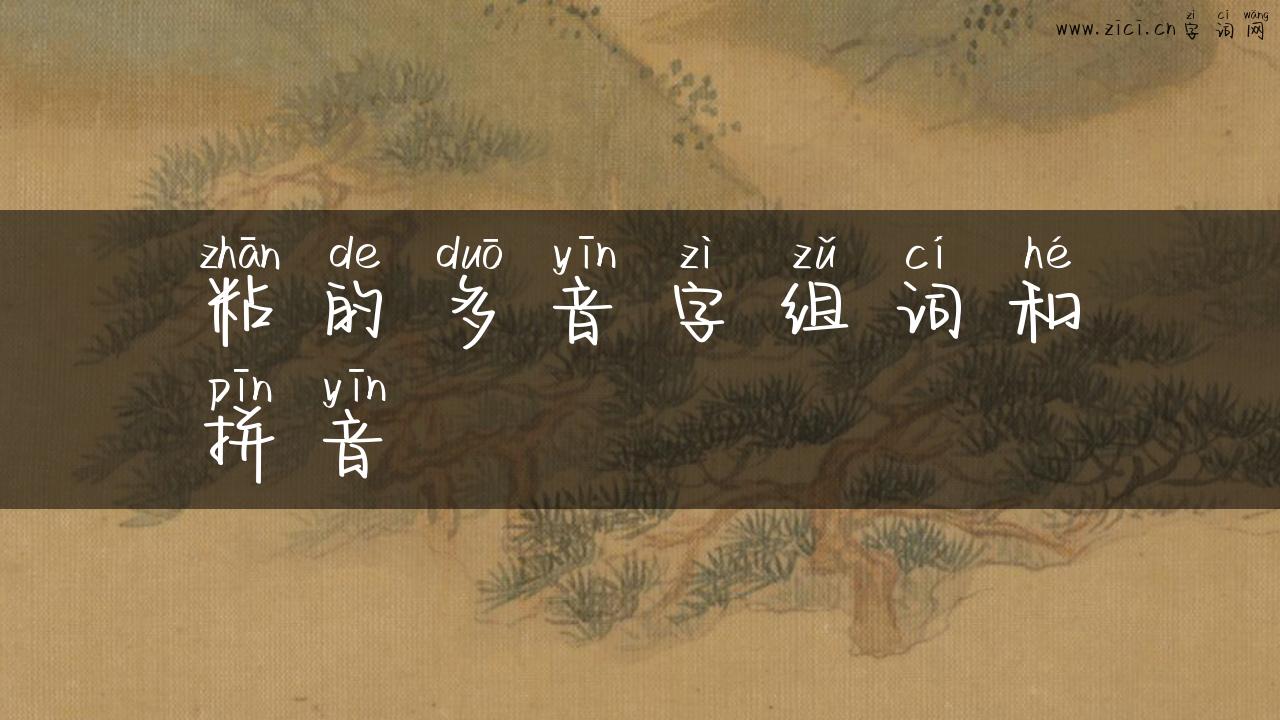 zì cí wǎng
www.zīcī.cn 字词网
zhān de duō yīn zì zǔ cí hé
粘的多音字组词和
pīn yīn
拼音